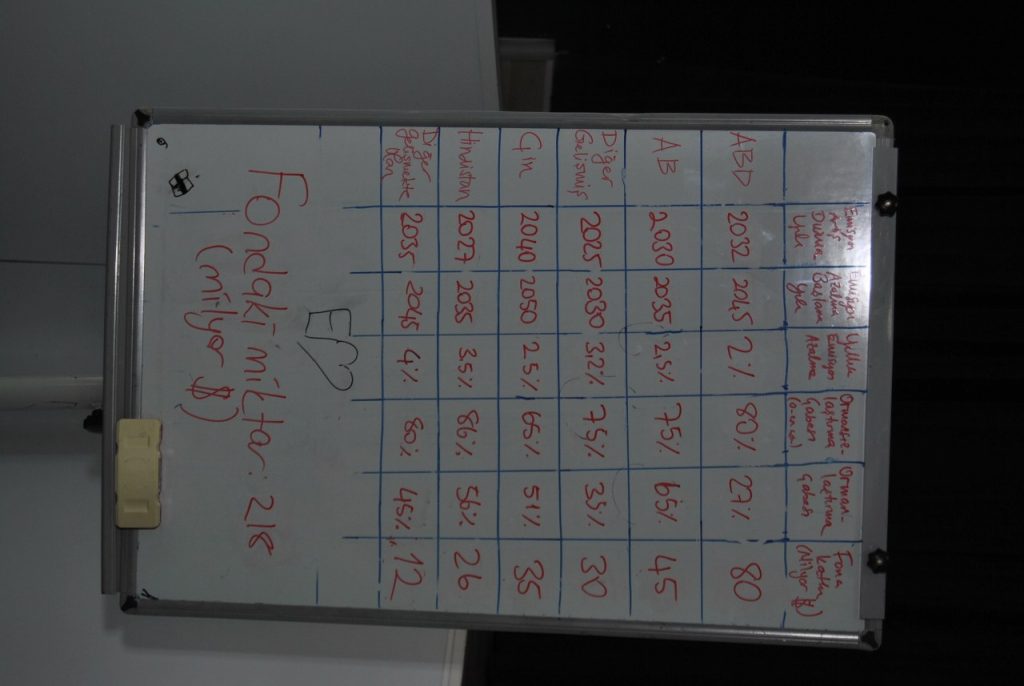 Emisyon Artış Durma Yılı | Emisyon Azalma Başlama Yılı | Yıllık Emisyon Azalma | Ormansız- laştırma Çabası | Ormanl- laştırma Çabası | Fona katkı (Milyar $)
ABD 2032 2045 2% 80% 27% 80
AB 2030 2035 2.5% 75% 65% 45
Diğer Gelişmiş 2025 2030 3.2% 75% 35% 30
Çin 2040 2050 2.5% 65% 51% 35
Hindistan 2027 2035 3.5% 86% 56% 26
Diğer gelişmekte olan 2035 2045 4% 80% 45% 12
Fondaki miktar: 218
(milyor $)